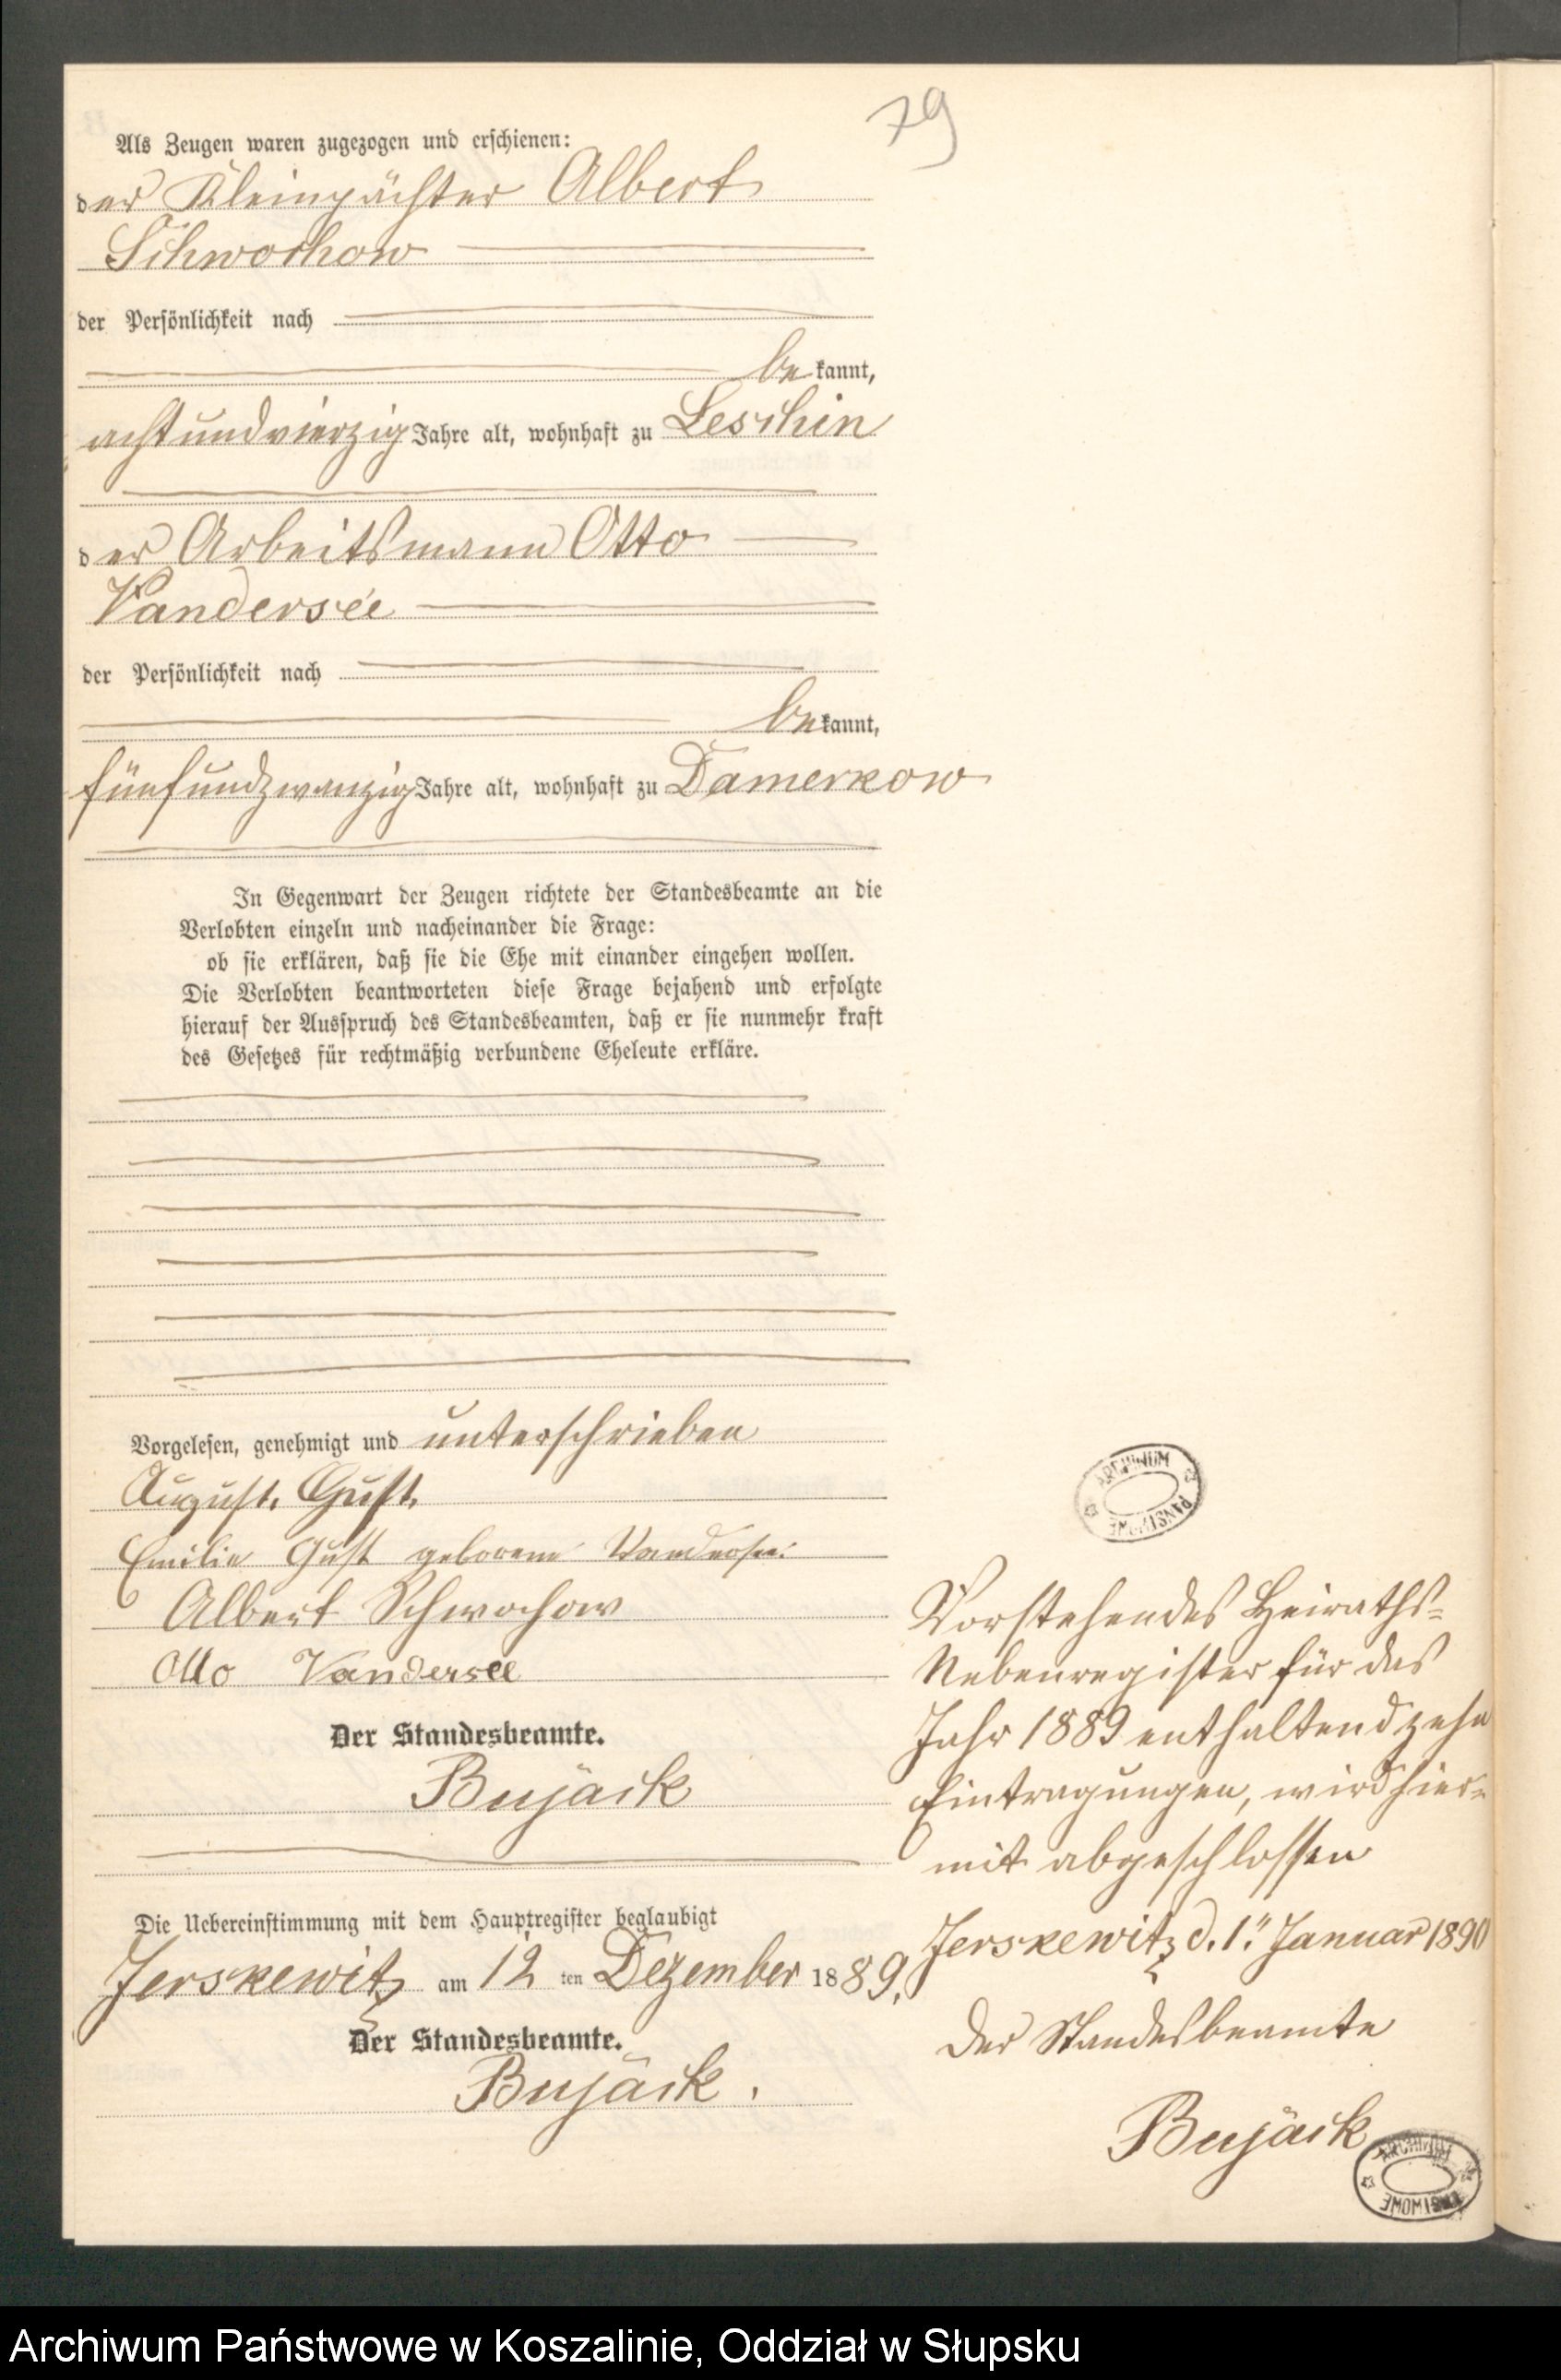 79
Als Zeugen waren zugezogen und erschienen:
der Kleinpächter Albert
Schwochow
der Persönlichkeit nach
be kannt,
achtundvierzig Jahre alt, wohnhaft zu Leschin
der Arbeitsmann Otto
Vandersee
der Persönlichkeit nach
bekannt,
fünfundzwanzig Jahre alt, wohnhaft zu Damerkow
In Gegenwart der Zeugen richtete der Standesbeamte an die
Verlobten einzeln und nacheinander die Frage:
ob sie erklären, daß sie die Ehe mit einander eingehen wollen.
Die Verlobten beantworteten diese Frage bejahend und erfolgte
hierauf der Ausspruch des Standesbeamten, daß er sie nunmehr kraft
des Gesetzes für rechtmäßig verbundene Eheleute erkläre.
Vorgelesen, genehmigt und unterschrieben
August. Gust.
Emilie Gust geborene Vandersee.
Albert Schwochow
Otto Vandersee
Der Standesbeamte.
Bujack
Die Uebereinstimmung mit dem Hauptregister beglaubigt
Jerskewitz am 12 ten Dezember 1889.
Der Standesbeamte.
Bujack.
ARCHIWUM
PAŃSTWOWE
Vorstehendes Heiraths-
Nebenregister für das
Jahr 1889 enthaltend zehn
Eintragungen, wird hier-
mit abgeschlossen
Jerskewitz d. 1. Januar 1890
Der Standesbeamte
Bujack
ARCHIWUM
PAŃSTWOWE
Archiwum Państwowe w Koszalinie, Oddział w Słupsku